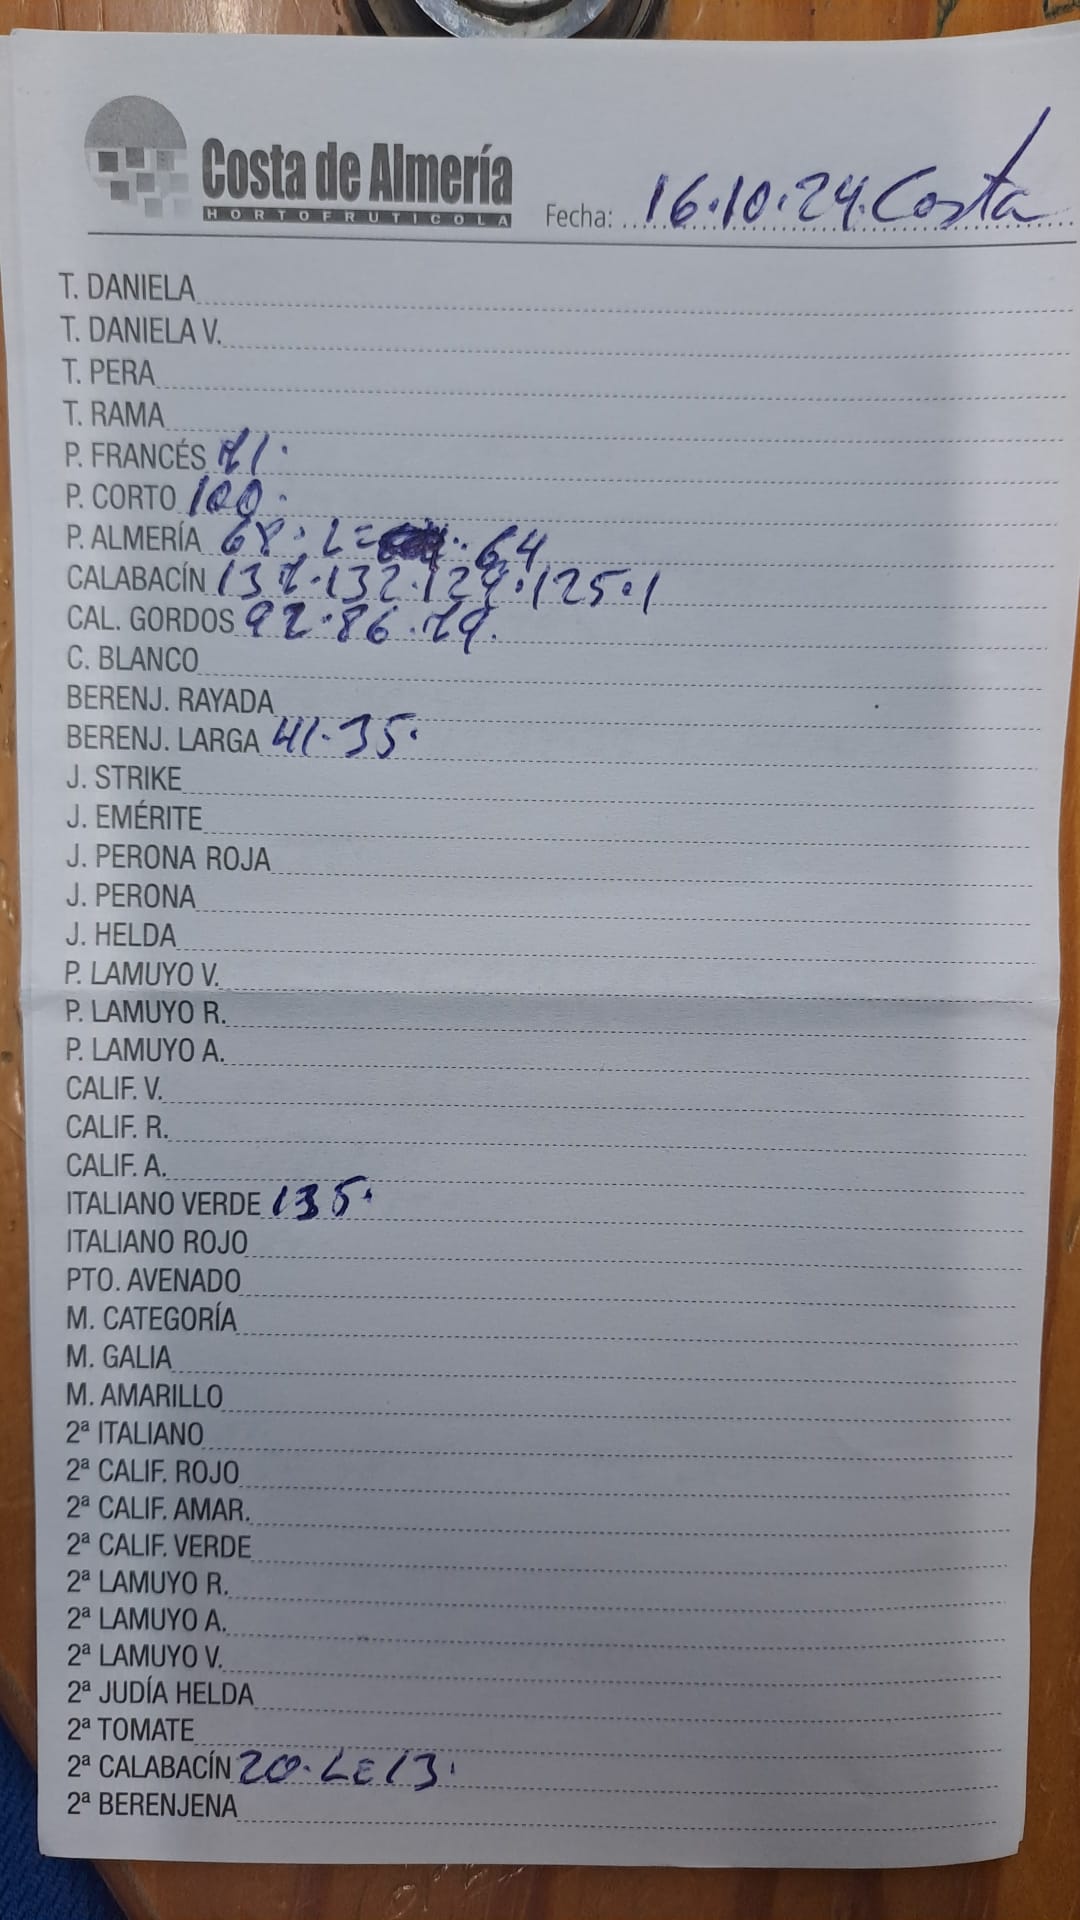 Costa de Almería
HORTOFRUTICOLA
Fecha: 16.10.24. Costa
T. DANIELA
T. DANIELA V.
T. PERA
T. RAMA
P. FRANCÉS 71.
P. CORTO 100.
P. ALMERÍA 68. L= 64
CALABACÍN 137.132.129.125.1
CAL. GORDOS 92.86.79.
C. BLANCO
BERENJ. RAYADA
BERENJ. LARGA 41.35.
J. STRIKE
J. EMÉRITE
J. PERONA ROJA
J. PERONA
J. HELDA
P. LAMUYO V.
P. LAMUYO R.
P. LAMUYO A.
CALIF. V.
CALIF. R.
CALIF. A.
ITALIANO VERDE 135.
ITALIANO ROJO
PTO. AVENADO
M. CATEGORÍA
M. GALIA
M. AMARILLO
2ª ITALIANO
2ª CALIF. ROJO
2ª CALIF. AMAR.
2ª CALIF. VERDE
2ª LAMUYO R.
2ª LAMUYO A.
2ª LAMUYO V.
2ª JUDÍA HELDA
2ª TOMATE
2ª CALABACÍN 20. L= 13.
2ª BERENJENA